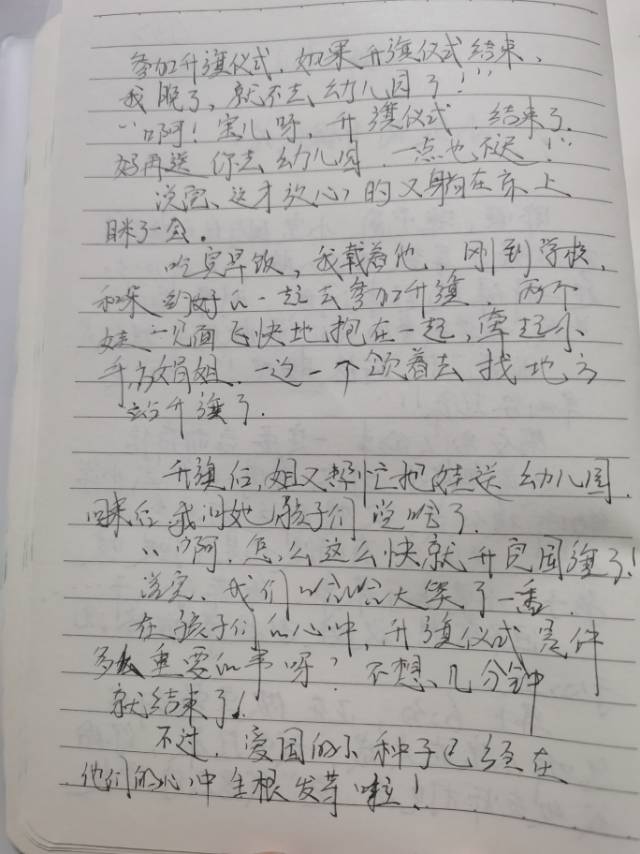 参加升旗仪式,如果升旗仪式结束,
我晚了,就不去幼儿园了!”
“啊!宝儿呀,升旗仪式结束了,
好再送你去幼儿园,一点也不迟!”
说完,这才放心的又躺在床上
眯了一会。
吃完早饭,我载着他,刚到学校,
和 约好的一起去参加升旗,两个
娃一见面飞快地抱在一起,牵起小
手 娟姐,一边一个领着去找地方
站升旗了。
升旗后,姐又帮忙把娃送幼儿园,
回来后我问她孩子们说啥了,
“啊,怎么这么快就升完国旗了!
说完,我们哈哈大笑了一番,
在孩子们的心中,升旗仪式是件
多么重要的事呀?不想,几分钟
就结束了!
不过,爱国的小种子已经在
他们的心中生根发芽啦!